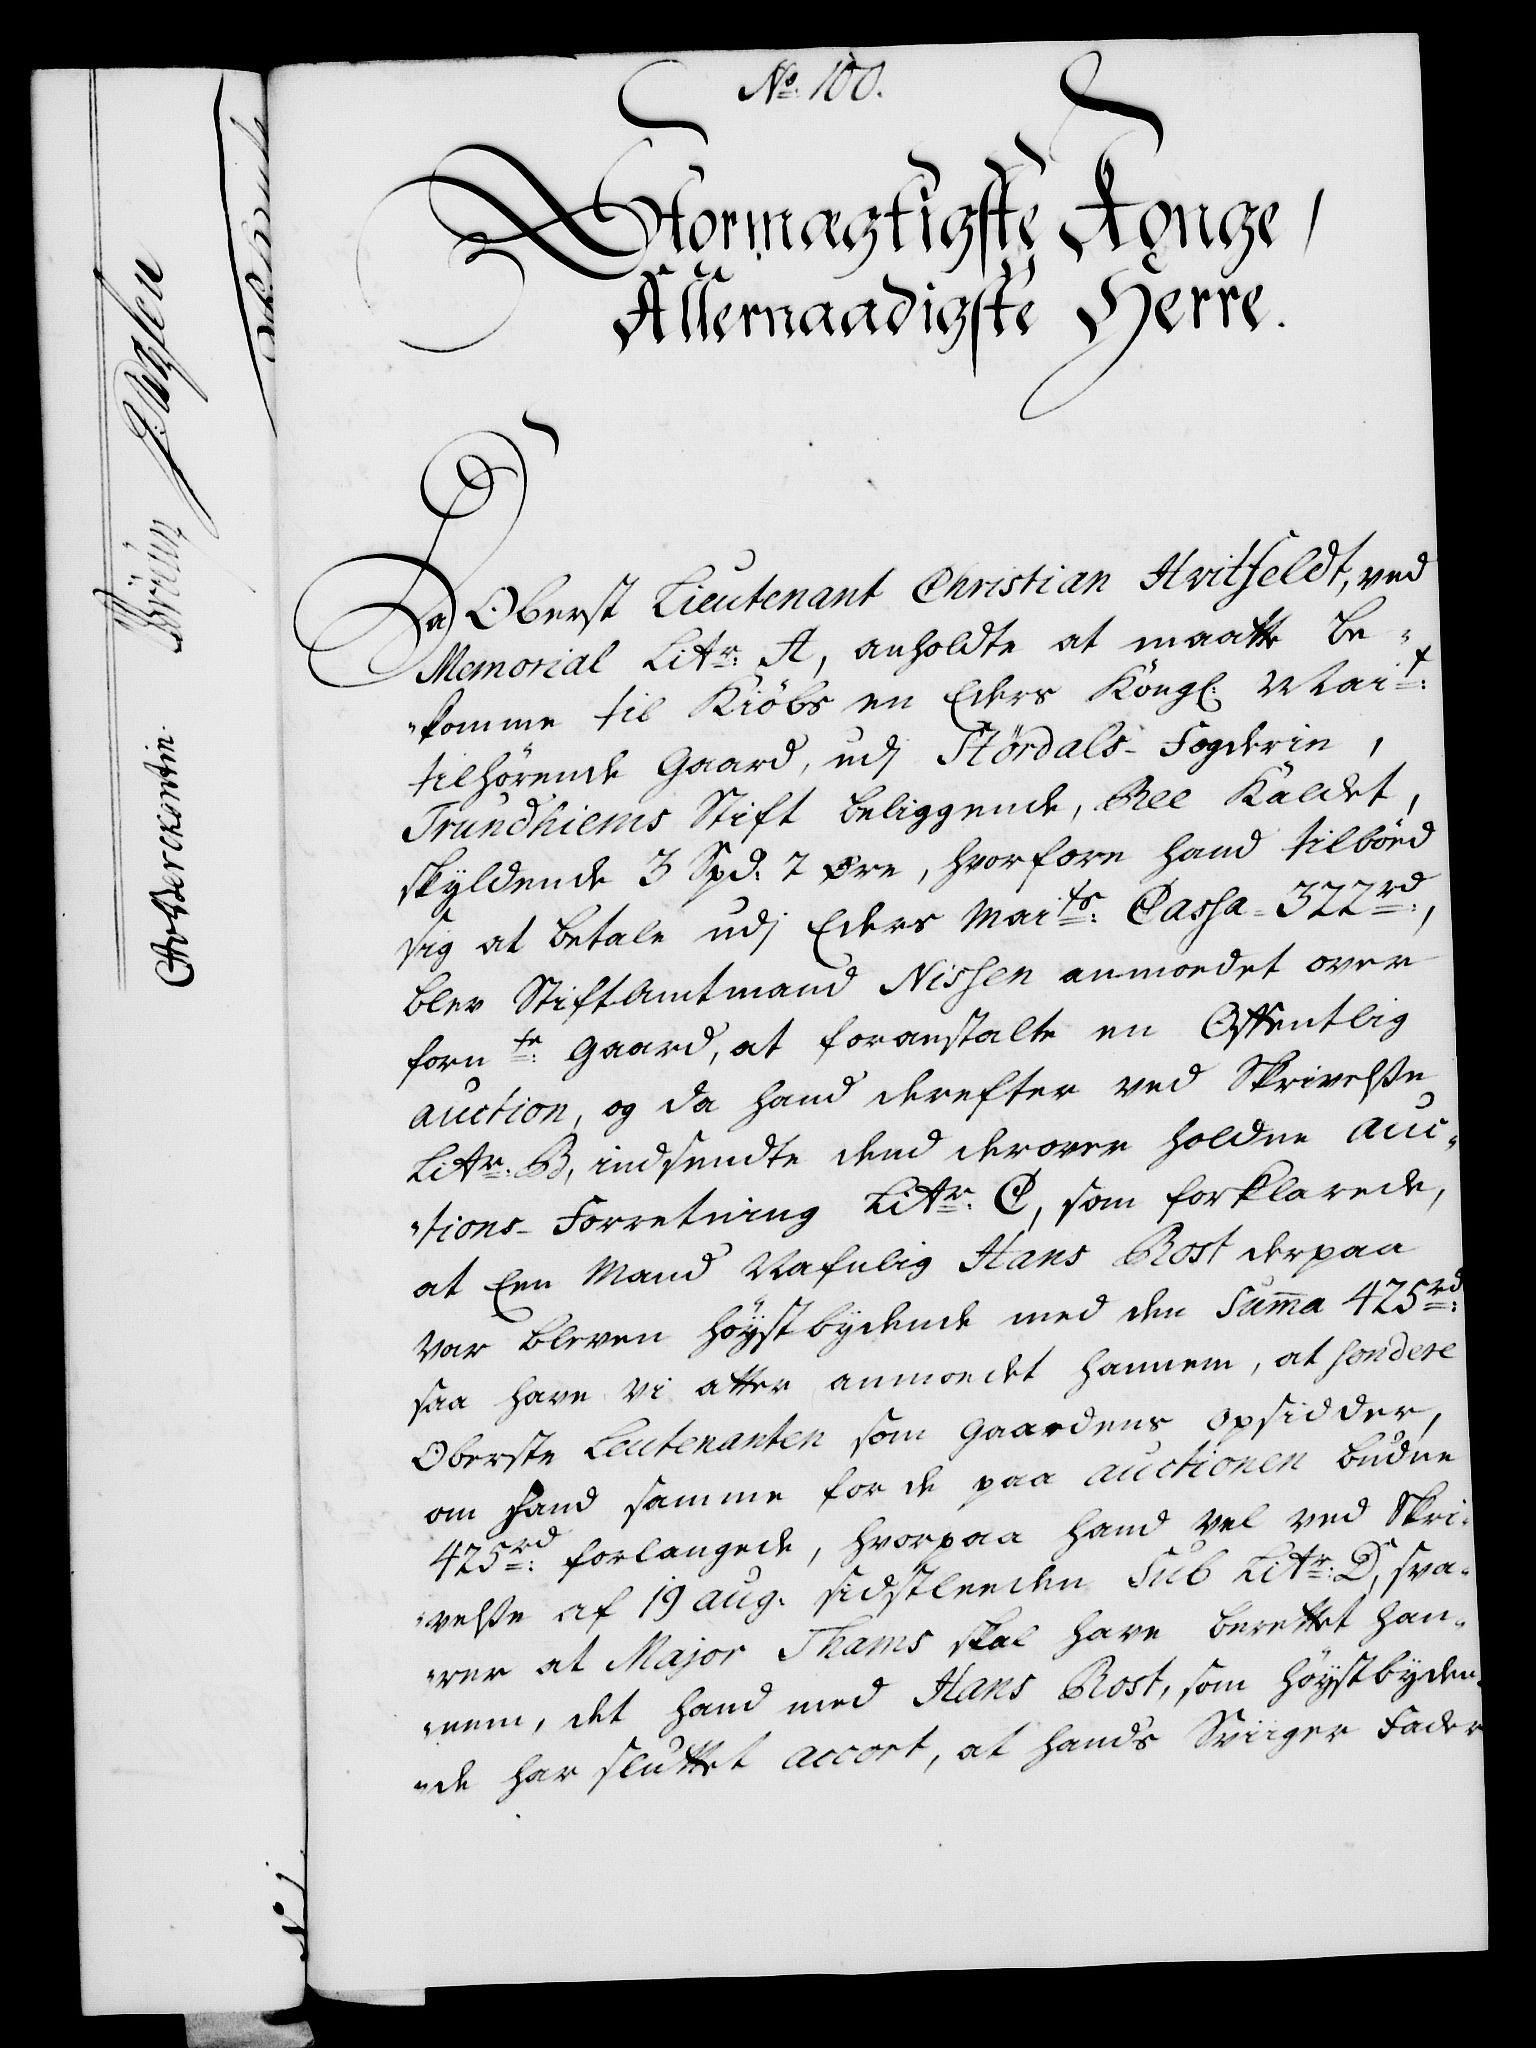 No. 100.
Stormægtigste Konge,
Allernaadigste Herre.
Da Oberst Lieutenant Christian Hvitfeldt, ved
Memorial Litr. A, anholdte at maatte be-
komme til Kiöbs en Eders Köngl. Mait
tilhörende Gaard, udj Stördals-Fogderie,
Trundhiems Stift beliggende, Ree kaldet,
skyldende 3 Spd. 2 øre, hvorfore hand tilböed
sig at betale udj Eders Maits Cassa 322 rd,
blev Stiftamtmand Nissen anmodet over
fornte Gaard, at foranstalte en Offentlig
auction, og da hand derefter ved Skrivelsse
Litr. B, indsendte dend derover holdne auc-
tions-Forretning Litr. C, som forklarede,
at Een Mand Nafnlig Hans Rost derpaa
var bleven höystbydende med den Sum̄a 425 rd
saa have vi atter anmodet hannem, at sondere
Oberste Leutenanten som Gaardens opsidder,
om Hand samme for de paa auctionen budne
425 rd forlangede, hvorpaa hand vel ved Skri-
velsse af 19 aug. sidstleeden Sub Litr. D, sva-
rer at Major Thams skal have berettet han-
nem, det hand med Hans Rost, som höystbyden-
de har sluttet accort, at hands Sviiger Fader
J. Wærnskiold